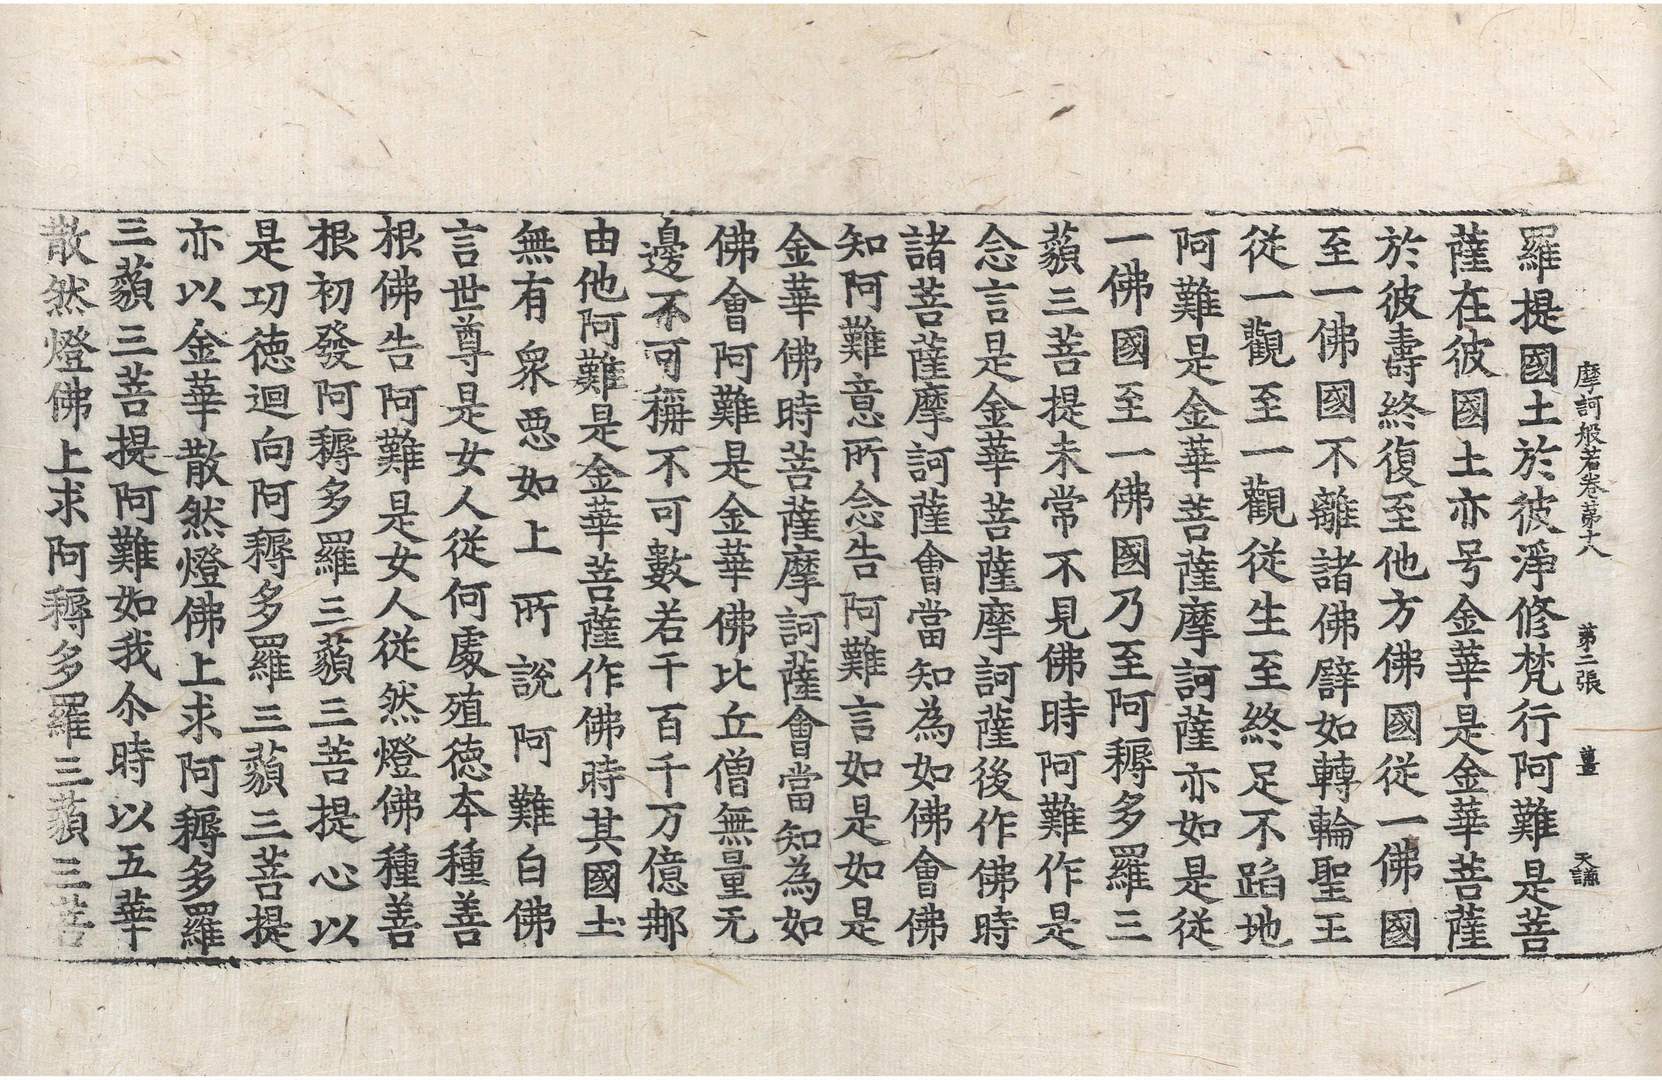 摩訶般若卷苐十八 苐二張 薑 天謙
羅提國土於彼淨修梵行阿難是菩
薩在彼國土亦号金華是金華菩薩
於彼壽終復至他方佛國從一佛國
至一佛國不離諸佛譬如轉輪聖王
從一觀至一觀從生至終足不蹈地
阿難是金華菩薩摩訶薩亦如是從
一佛國至一佛國乃至阿耨多羅三
藐三菩提未常不見佛時阿難作是
念言是金華菩薩摩訶薩後作佛時
諸菩薩摩訶薩會當知為如佛會佛
知阿難意所念告阿難言如是如是
金華佛時菩薩摩訶薩會當知為如
佛會阿難是金華佛比丘僧無量无
邊不可稱不可數若干百千万億那
由他阿難是金華菩薩作佛時其國土
無有衆惡如上所說阿難白佛
言世尊是女人從何處殖德本種善
根佛告阿難是女人從然燈佛種善
根初發阿耨多羅三藐三菩提心以
是功德迴向阿耨多羅三藐三菩提
亦以金華散然燈佛上求阿耨多羅
三藐三菩提阿難如我尒時以五華
散然燈佛上求阿耨多羅三藐三菩